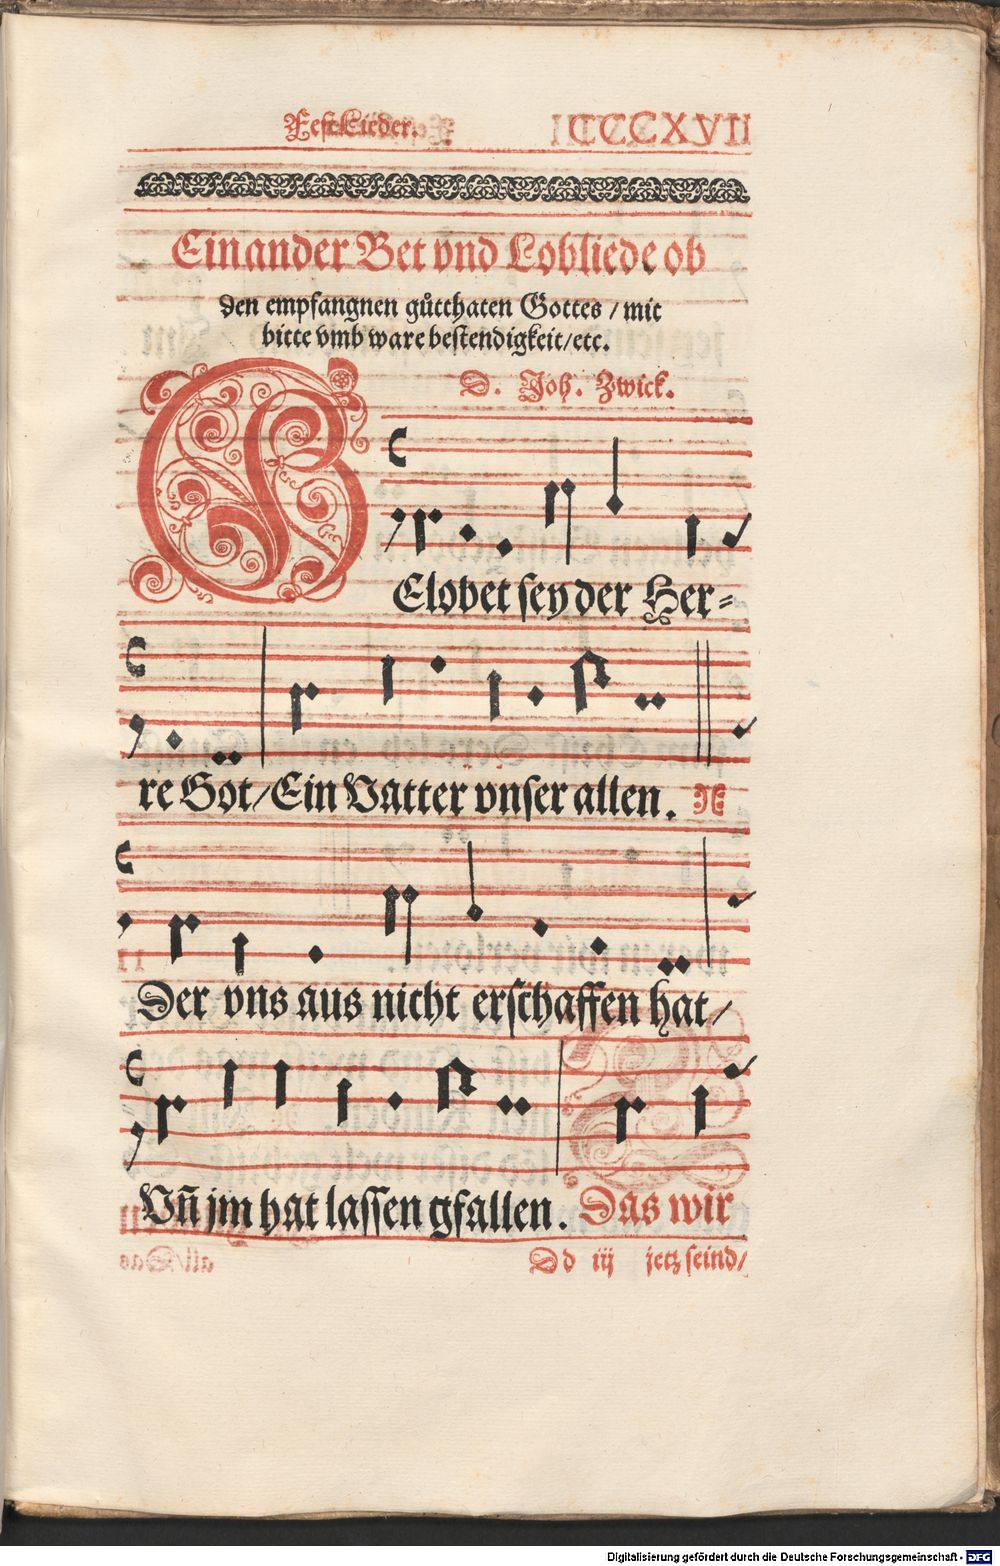 Fest Lieder. CCCXVII
Ein ander Bet vnd Lobliede ob
den empfangnen gůtthaten Gottes / mit
bitte vmb ware bestendigkeit/etc.
D. Joh. Zwick.
GElobet sey der Her⸗
re Got/Ein Vatter vnser allen.
Der vns aus nicht erschaffen hat/
Vn̄ jm hat lassen gfallen. Das wir
Dd iij jetz seind/
Digitalisierung gefördert durch die Deutsche Forschungsgemeinschaft - DFG